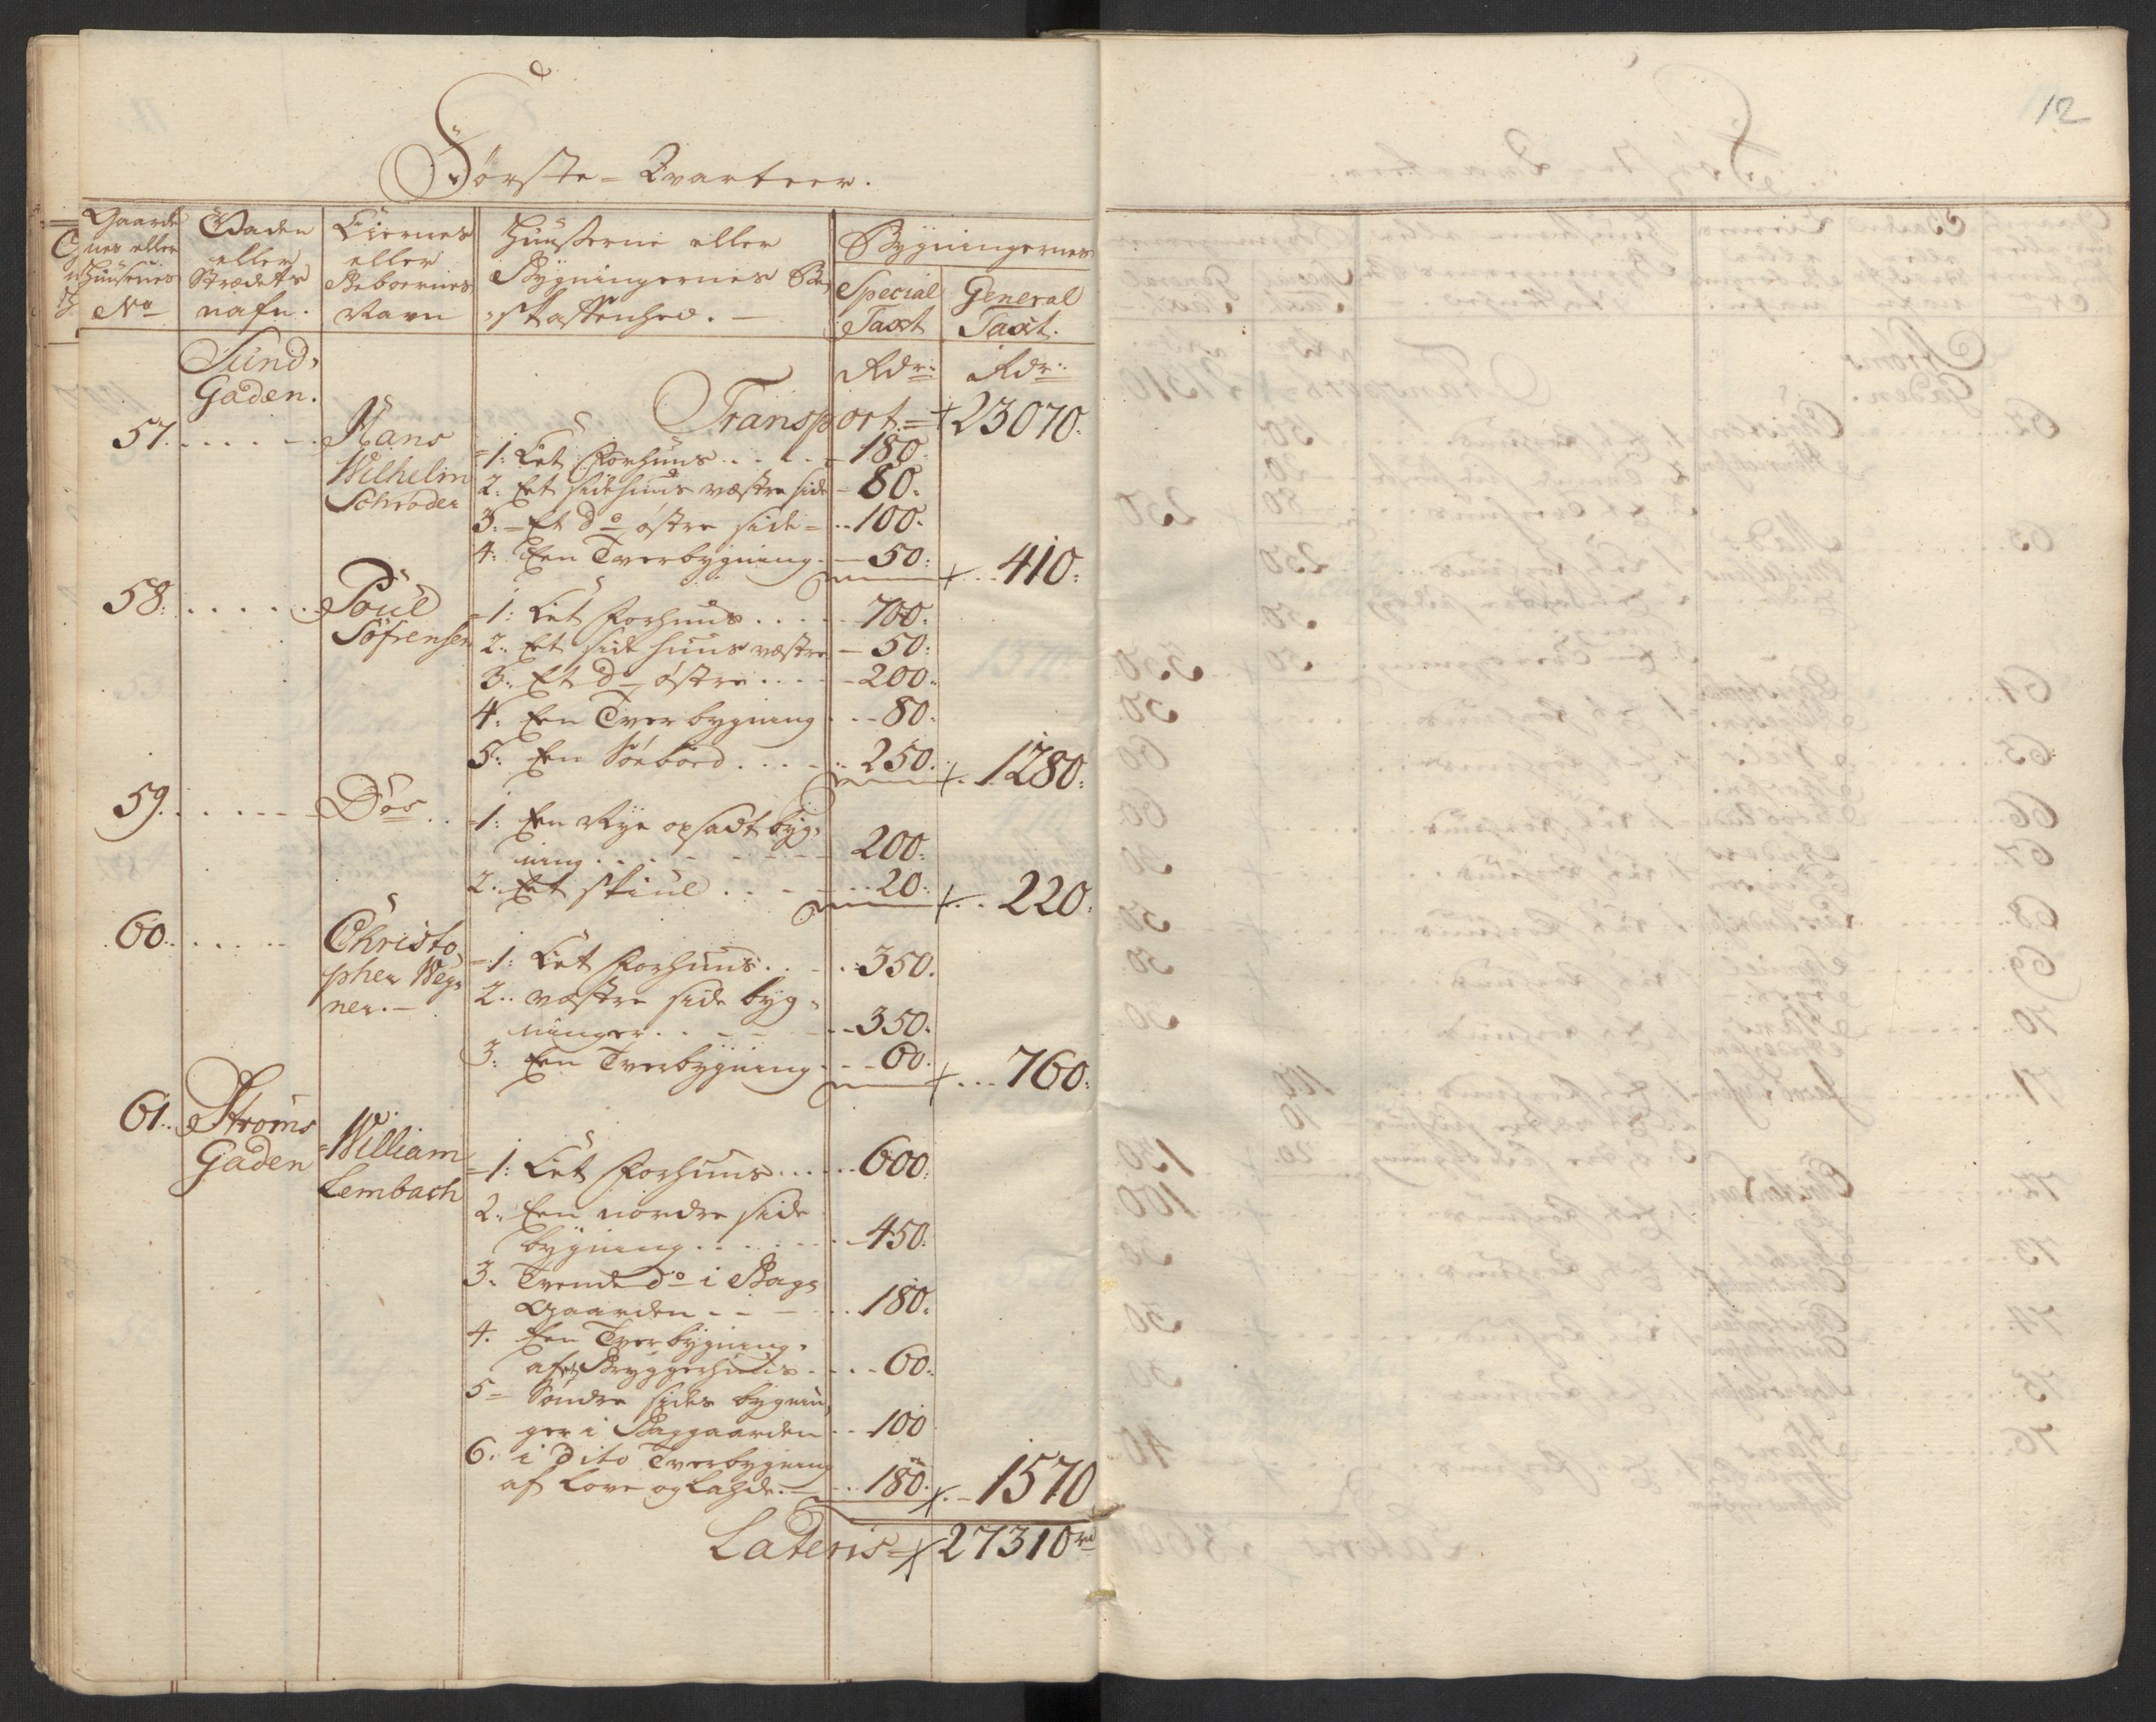 12
Første = Qvarteer.
Gaarde
nes eller
Huusenes
No
Gaden
eller
Strædets
nafn.
Eiernes
eller
Beboernes
Navn
Huuserne eller
Bygningernes Be,
skaffenhed. —
Bygningernes
Special
Taxt
General
Taxt.
Rdr: Rdr:
Sund,
Gaden.
Transport = 23070.
57. Hans
Wilhelm
Schröder
1: Eet Forhuus . . . . 180.
2. Eet sidehuus væstre side — 80.
3. — Et do østre side = . . 100.
4. Een Tverbygning. — 50: 410:
58. Poul
Söfrensen
1: Eet forhuus . . . . 700.
2. Et side huus væstre — 50:
3. Et do østre . . . . 200.
4. Een Tver bygning . . 80.
5. Een Söeboed . . . . 250. 1280:
59. Dos
1: Een Nye opsadt byg,
ning . . . . 200.
2. Et skiul . . . . 20. 220.
60. Christo,
pher Weg,
ner. —
1: Eet forhuus . . . 350.
2. væstre side byg,
ninger . . . . 350.
3. Een Tverbygning . . 60. 760.
61. Stroms
Gaden
William
Lembach
1: Eet forhuus . . . . 600.
2. Een nordre side
bygning . . . . 450.
3. Tvende do i Bag,
Gaarden . . . . 180.
4. Een Tverbygning.
af Bryggerhuus . . . . 60.
5 = Söndre sides bygnin,
ger i Baggaarden . . 100
6. i Dito Tverbygning
af Love og Lahde. — . . 180. 1570
Lateris = 27310